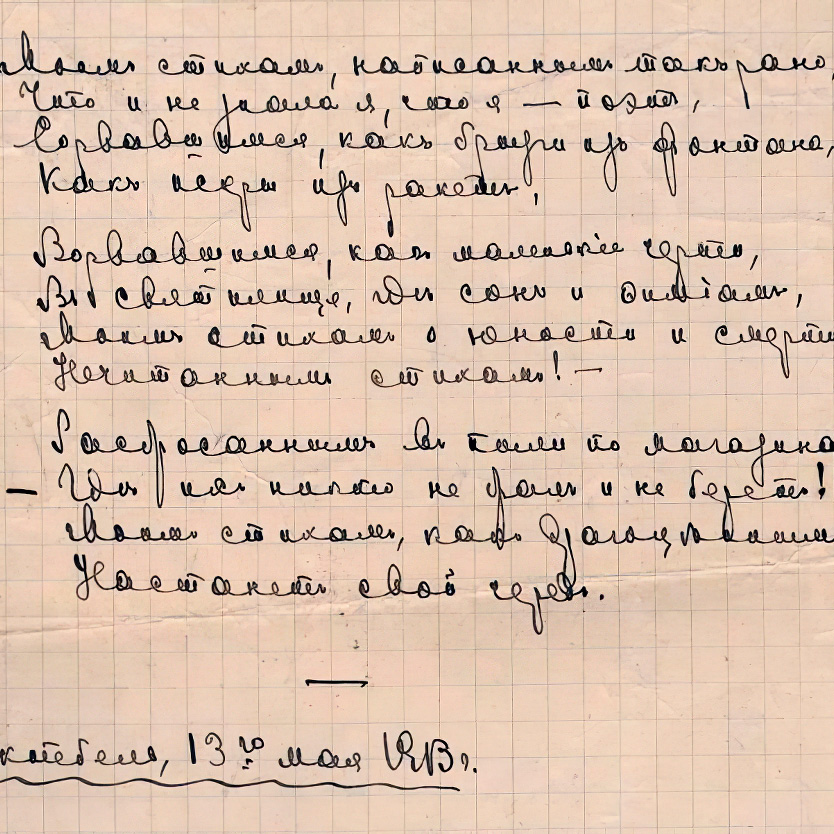 Моимъ стихамъ, написаннымъ такъ рано,
Что и не знала я, что я — поэтъ,
Сорвавшимся, какъ брызги изъ фонтана,
Какъ искры изъ ракетъ,
Ворвавшимся, какъ маленькіе черти,
Въ святилище, гдѣ сонъ и ѳиміамъ,
Моимъ стихамъ о юности и смерти
Нечитаннымъ стихамъ! —
Разбросаннымъ въ пыли по магазина
— Гдѣ ихъ никто не бралъ и не беретъ!
Моимъ стихамъ, какъ драгоцѣннымъ
Настанетъ свой чередъ.
—
ктебель, 13го мая 1913 г.